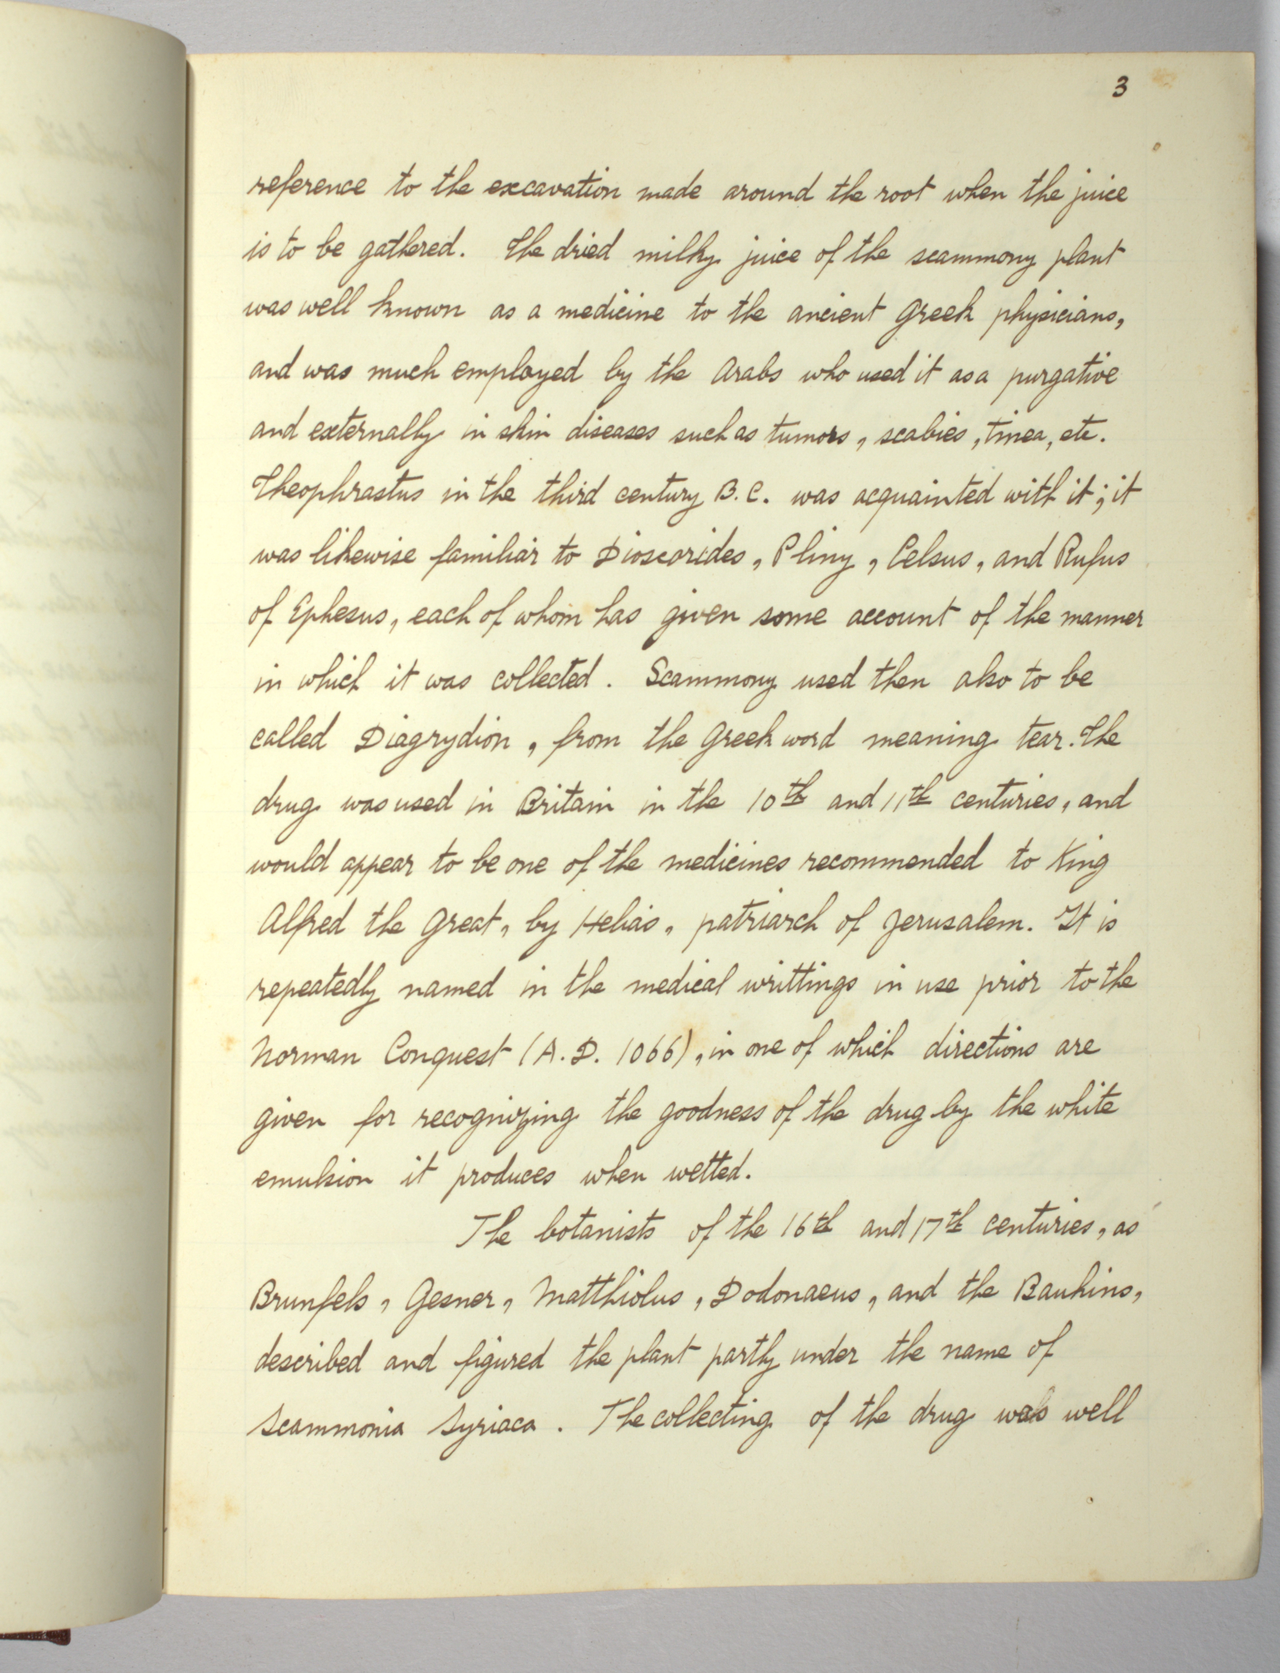 3
reference to the excavation made around the root when the juice
is to be gathered. The dried milky juice of the scammony plant
was well known as a medicine to the ancient Greek physicians,
and was much employed by the Arabs who used it as a purgative
and externally in skin diseases such as tumors, scabies, tinea, etc.
Theophrastus in the third century B.C. was acquainted with it; it
was likewise familiar to Dioscorides, Pliny, Celsus, and Rufus
of Ephesus, each of whom has given some account of the manner
in which it was collected. Scammony used then also to be
called Diagrydion, from the Greek word meaning tear. The
drug was used in Britain in the 10th and 11th centuries, and
would appear to be one of the medicines recommended to King
Alfred the Great, by Helias, patriarch of Jerusalem. It is
repeatedly named in the medical writtings in use prior to the
Norman Conquest (A.D. 1066), in one of which directions are
given for recognizing the goodness of the drug by the white
emulsion it produces when wetted.
The botanists of the 16th and 17th centuries, as
Brunfels, Gesner, Matthiolus, Dodonaeus, and the Bauhins,
described and figured the plant partly under the name of
Scammonia Syriaca. The collecting of the drug was well